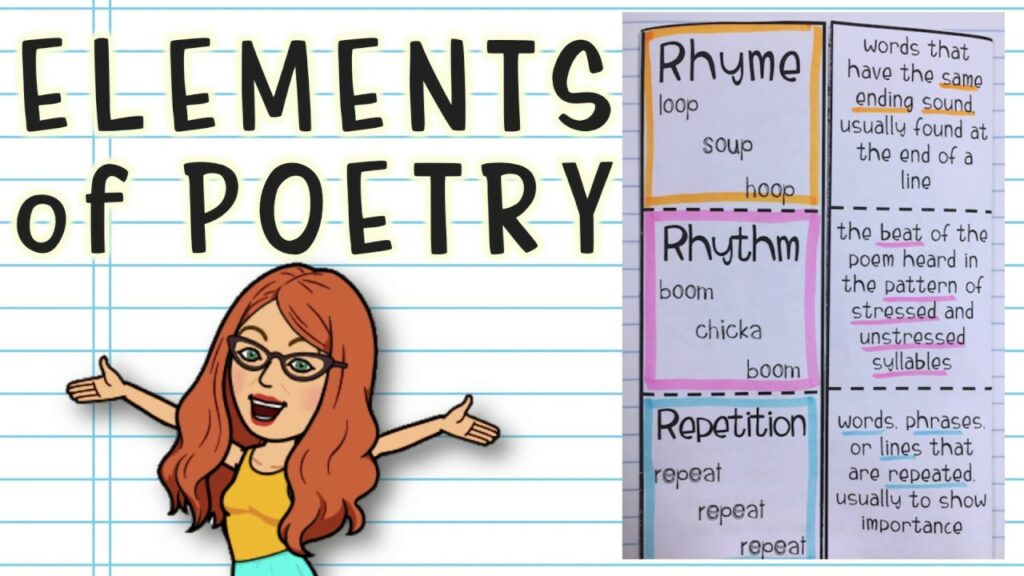 ELEMENTS
of POETRY
Rhyme
loop
soup
hoop
words that
have the same
ending sound,
usually found at
the end of a
line
Rhythm
boom
chicka
boom
the beat of the
poem heard in
the pattern of
stressed and
unstressed
syllables
Repetition
repeat
repeat
repeat
words, phrases,
or lines that
are repeated,
usually to show
importance